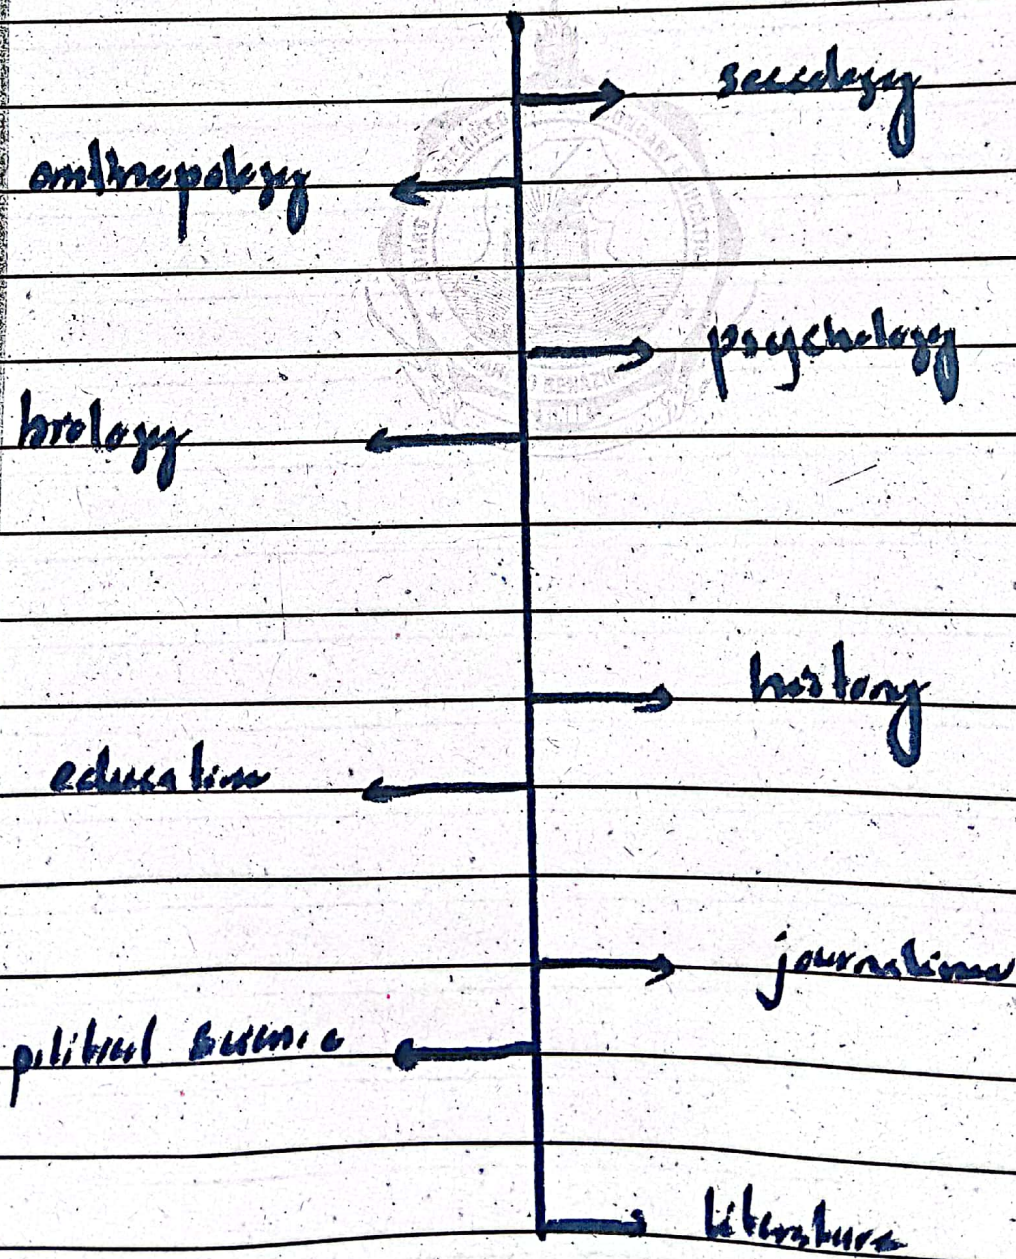 sociology
anthropology
psychology
biology
history
education
journalism
political science
literature